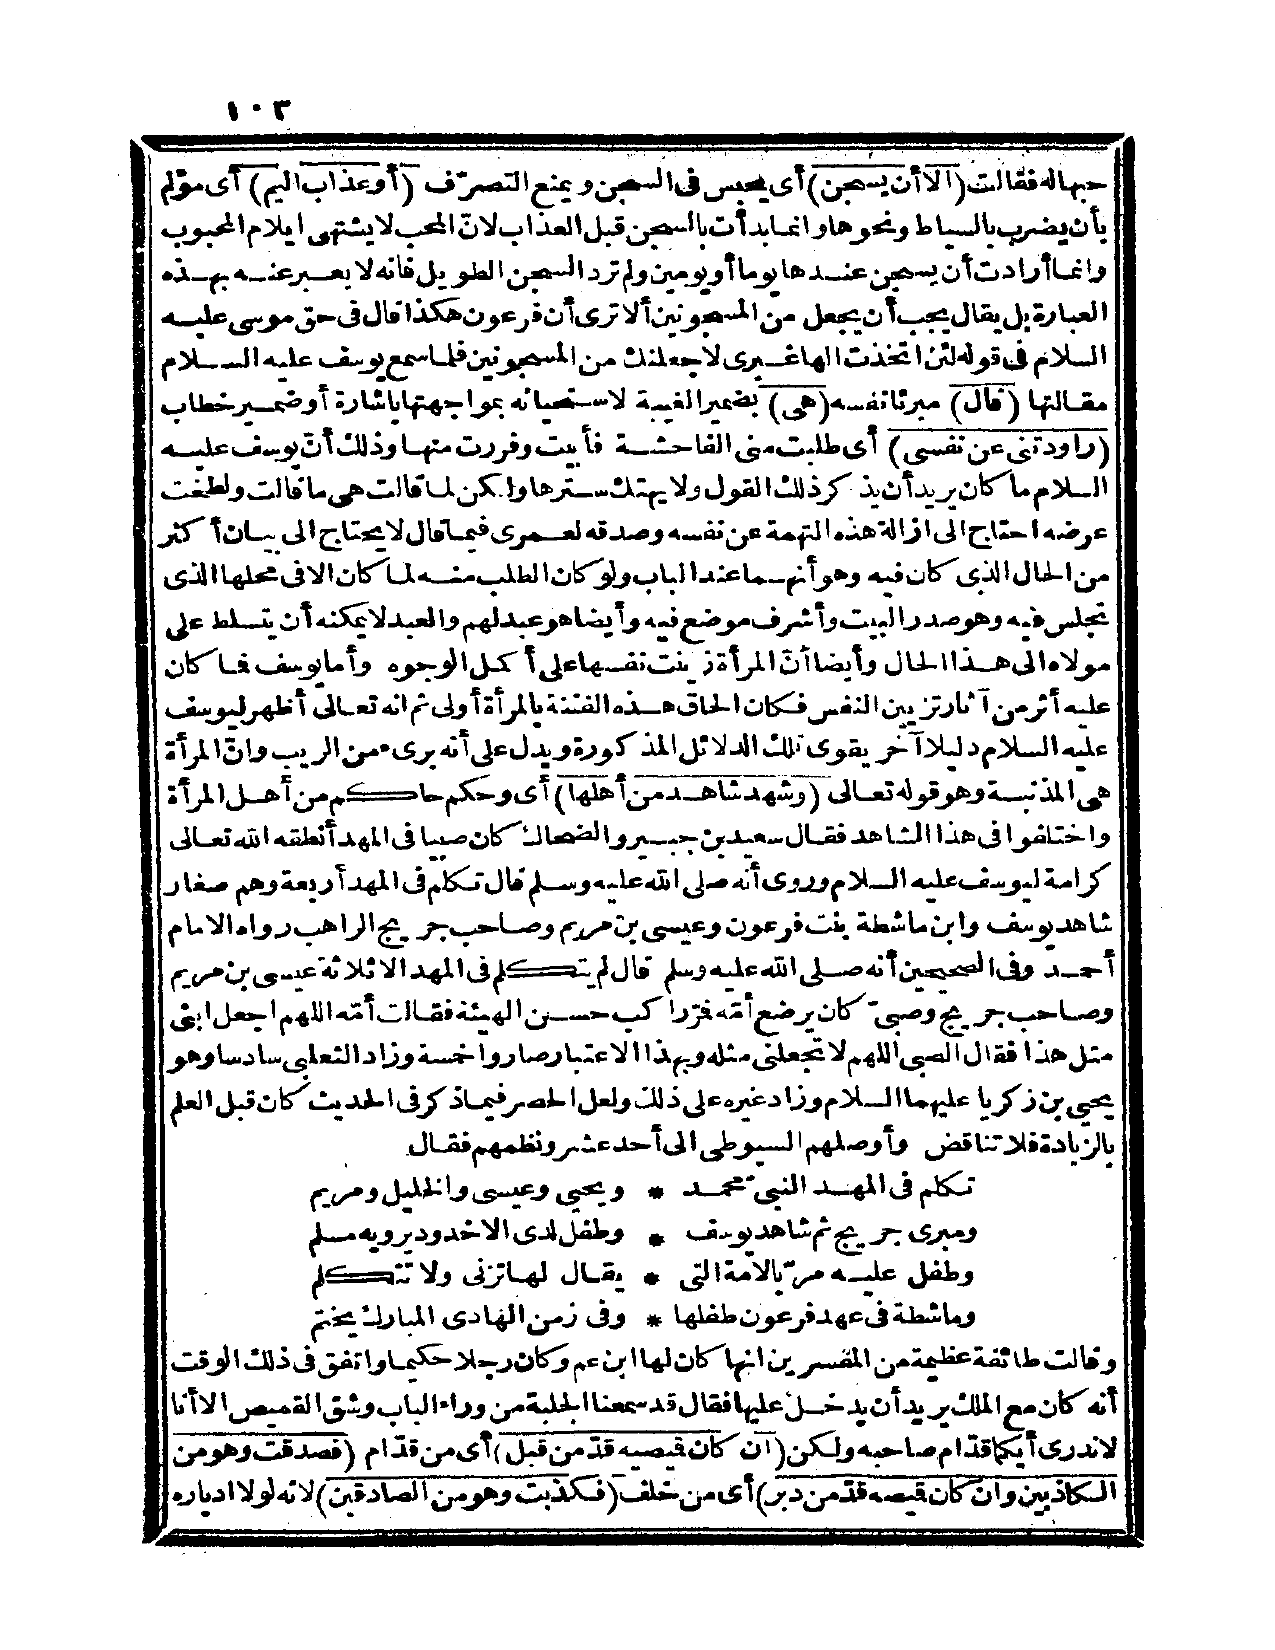 ١٠٣
حبهاله فقالت (الا أن يسجن) أى يحبس فى السجن ويمنع التصرّف (أو عذاب اليم) أى مؤلم
بأن يضرب بالسياط ونحوها وانما بدأت بالسجن قبل العذاب لانّ المحب لا يشتهى ايلام المحبوب
وانما أرادت أن يسجن عندها يوما أو يومين ولم ترد السجن الطويل فانه لا يعبر عنه بهذه
العبارة بل يقال يجب أن يجعل من المسجونين ألا ترى أن فرعون هكذا قال فى حق موسى عليه
السلام فى قوله لئن اتخذت الها غيرى لاجعلنك من المسجونين فلما سمع يوسف عليه السلام
مقالتها (قال) مبرئا نفسه (هى) بضمير الغيبة لاستحيائه بمواجهتها باشارة أو ضمير خطاب
(راودتنى عن نفسى) أى طلبت منى الفاحشة فأبيت وفررت منها وذلك أنّ يوسف عليه
السلام ما كان يريد أن يذكر ذلك القول ولا يهتك سترها ولكن لما قالت هى ما قالت ولطخت
عرضه احتاج الى ازالة هذه التهمة عن نفسه وصدقه لعمرى فيما قال لا يحتاج الى بيان أكثر
من الحال الذى كان فيه وهو أنهما عند الباب ولو كان الطلب منه لما كان الا فى محلها الذى
تجلس فيه وهو صدر البيت وأشرف موضع فيه وأيضا هو عبد لهم والعبد لا يمكنه أن يتسلط على
مولاه الى هذا الحال وأيضا أنّ المرأة زينت نفسها على أكمل الوجوه وأما يوسف فما كان
عليه أثر من آثار تزيين النفس فكان الحاق هذه الفتنة بالمرأة أولى ثم انه تعالى أظهر ليوسف
عليه السلام دليلا آخر يقوى تلك الدلائل المذكورة ويدل على أنه برىء من الريب وانّ المرأة
هى المذنبة وهو قوله تعالى (وشهد شاهد من أهلها) أى وحكم حاكم من أهل المرأة
واختلفوا فى هذا الشاهد فقال سعيد بن جبير والضحاك كان صبيا فى المهد أنطقه الله تعالى
كرامة ليوسف عليه السلام وروى أنه صلى الله عليه وسلم قال تكلم فى المهد أربعة وهم صغار
شاهد يوسف وابن ماشطة بنت فرعون وعيسى بن مريم وصاحب جريج الراهب رواه الامام
أحمد وفى الصحيحين أنه صلى الله عليه وسلم قال لم يتكلم فى المهد الا ثلاثة عيسى بن مريم
وصاحب جريج وصبىّ كان يرضع أمّه فمرّ راكب حسن الهيئة فقالت أمّه اللهم اجعل ابنى
مثل هذا فقال الصبى اللهم لا تجعلنى مثله وبهذا الاعتبار صاروا خمسة وزاد الثعلبى سادسا وهو
يحيى بن زكريا عليهما السلام وزاد غيره على ذلك ولعل الحصر فيما ذكر فى الحديث كان قبل العلم
بالزيادة فلا تناقض وأوصلهم السيوطى الى أحد عشر ونظمهم فقال
تكلم فى المهد النبىّ محمد * ويحيى وعيسى والخليل ومريم
ومبرى جريج ثم شاهد يوسف * وطفل لدى الاخدود يرويه مسلم
وطفل عليه مرّ بالامة التى * يقال لها تزنى ولا تتكلم
وماشطة فى عهد فرعون طفلها * وفى زمن الهادى المبارك يختم
وقالت طائفة عظيمة من المفسرين انها كان لها ابن عم وكان رجلا حكيما واتفق فى ذلك الوقت
أنه كان مع الملك يريد أن يدخل عليها فقال قد سمعنا الجلبة من وراء الباب وشق القميص الا أنا
لا ندرى أيكما قدّام صاحبه ولكن (ان كان قميصه قدّ من قبل) أى من قدّام (فصدقت وهو من
الكاذبين وان كان قميصه قدّ من دبر) أى من خلف (فكذبت وهو من الصادقين) لانه لولا ادباره